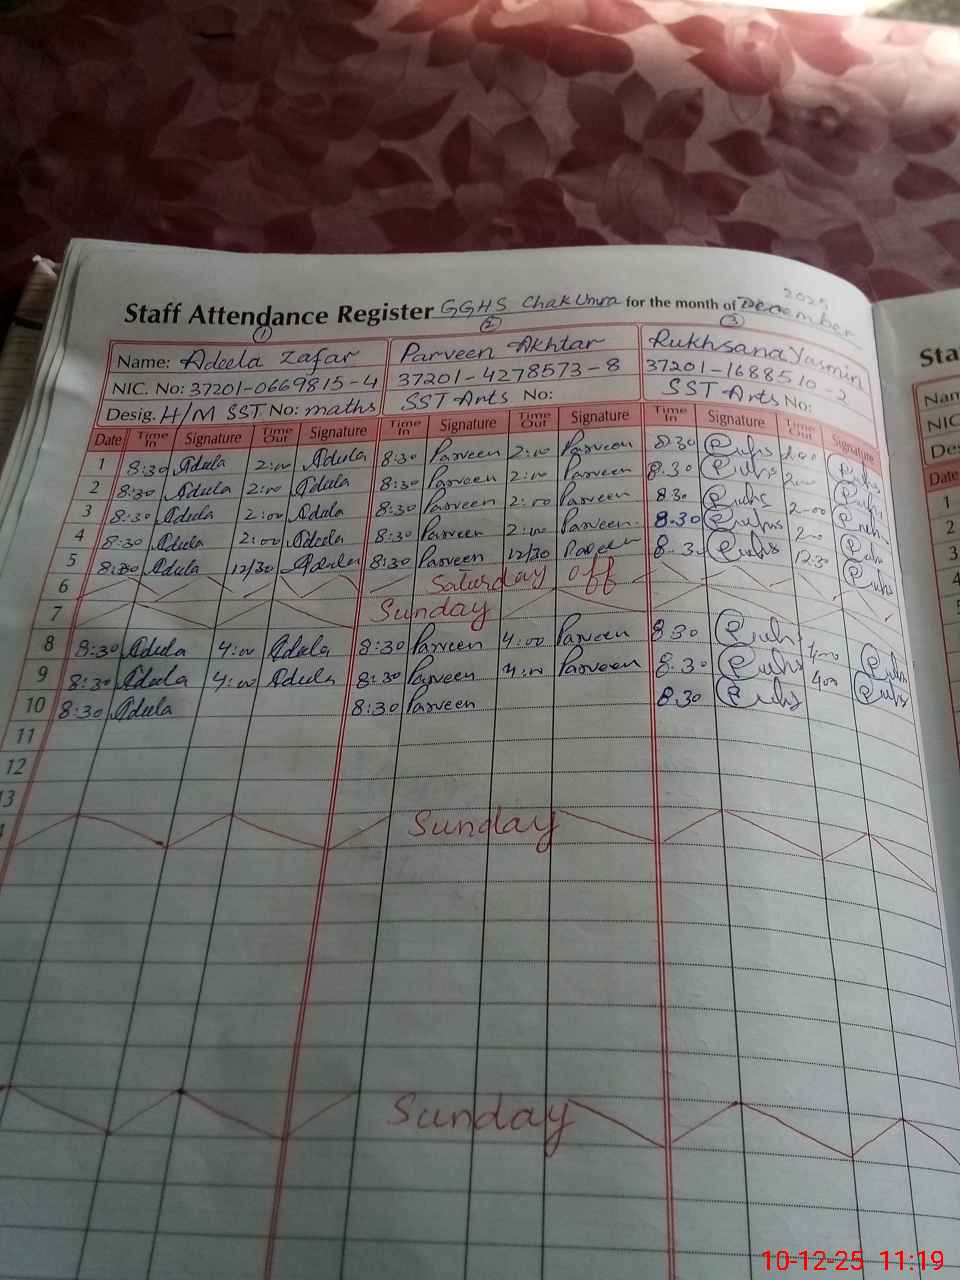 2025
Staff Attendance Register GGHS Chak Umra for the month of December
1 2 3
Name: Adeela Zafar Parveen Akhtar Rukhsana Yasmin
NIC. No: 37201-0669815-4 37201-4278573-8 37201-1688510-2
Desig. H/M SST No: maths SST Arts No: SST Arts No:
Date Time In Signature Time Out Signature Time In Signature Time Out Signature Time In Signature Time Out Signature
1 8:30 Adeela 2:00 Adeela 8:30 Parveen 2:00 Parveen 8:30 200
2 8:30 Adeela 2:00 Adeela 8:30 Parveen 2:00 Parveen 8.30 200
3 8:30 Adeela 2:00 Adeela 8:30 Parveen 2:00 Parveen 830 2-00
4 8:30 Adeela 2:00 Adeela 8:30 Parveen 2:00 Parveen 8.30 200
5 8:30 Adeela 12/30 Adeela 8:30 Parveen 12/30 Parveen 8.3 12:30
6 Saturday off
7 Sunday
8 8:30 Adeela 4:00 Adeela 8:30 Parveen 4:00 Parveen 830 400
9 8:30 Adeela 4:00 Adeela 8:30 Parveen 4:00 Parveen 8.30 400
10 8:30 Adeela 8:30 Parveen 8.30
11
12
13
Sunday
Sunday
Sta
Nam
NIC
Des
Date
1
2
3
4
5
10-12-25 11:19